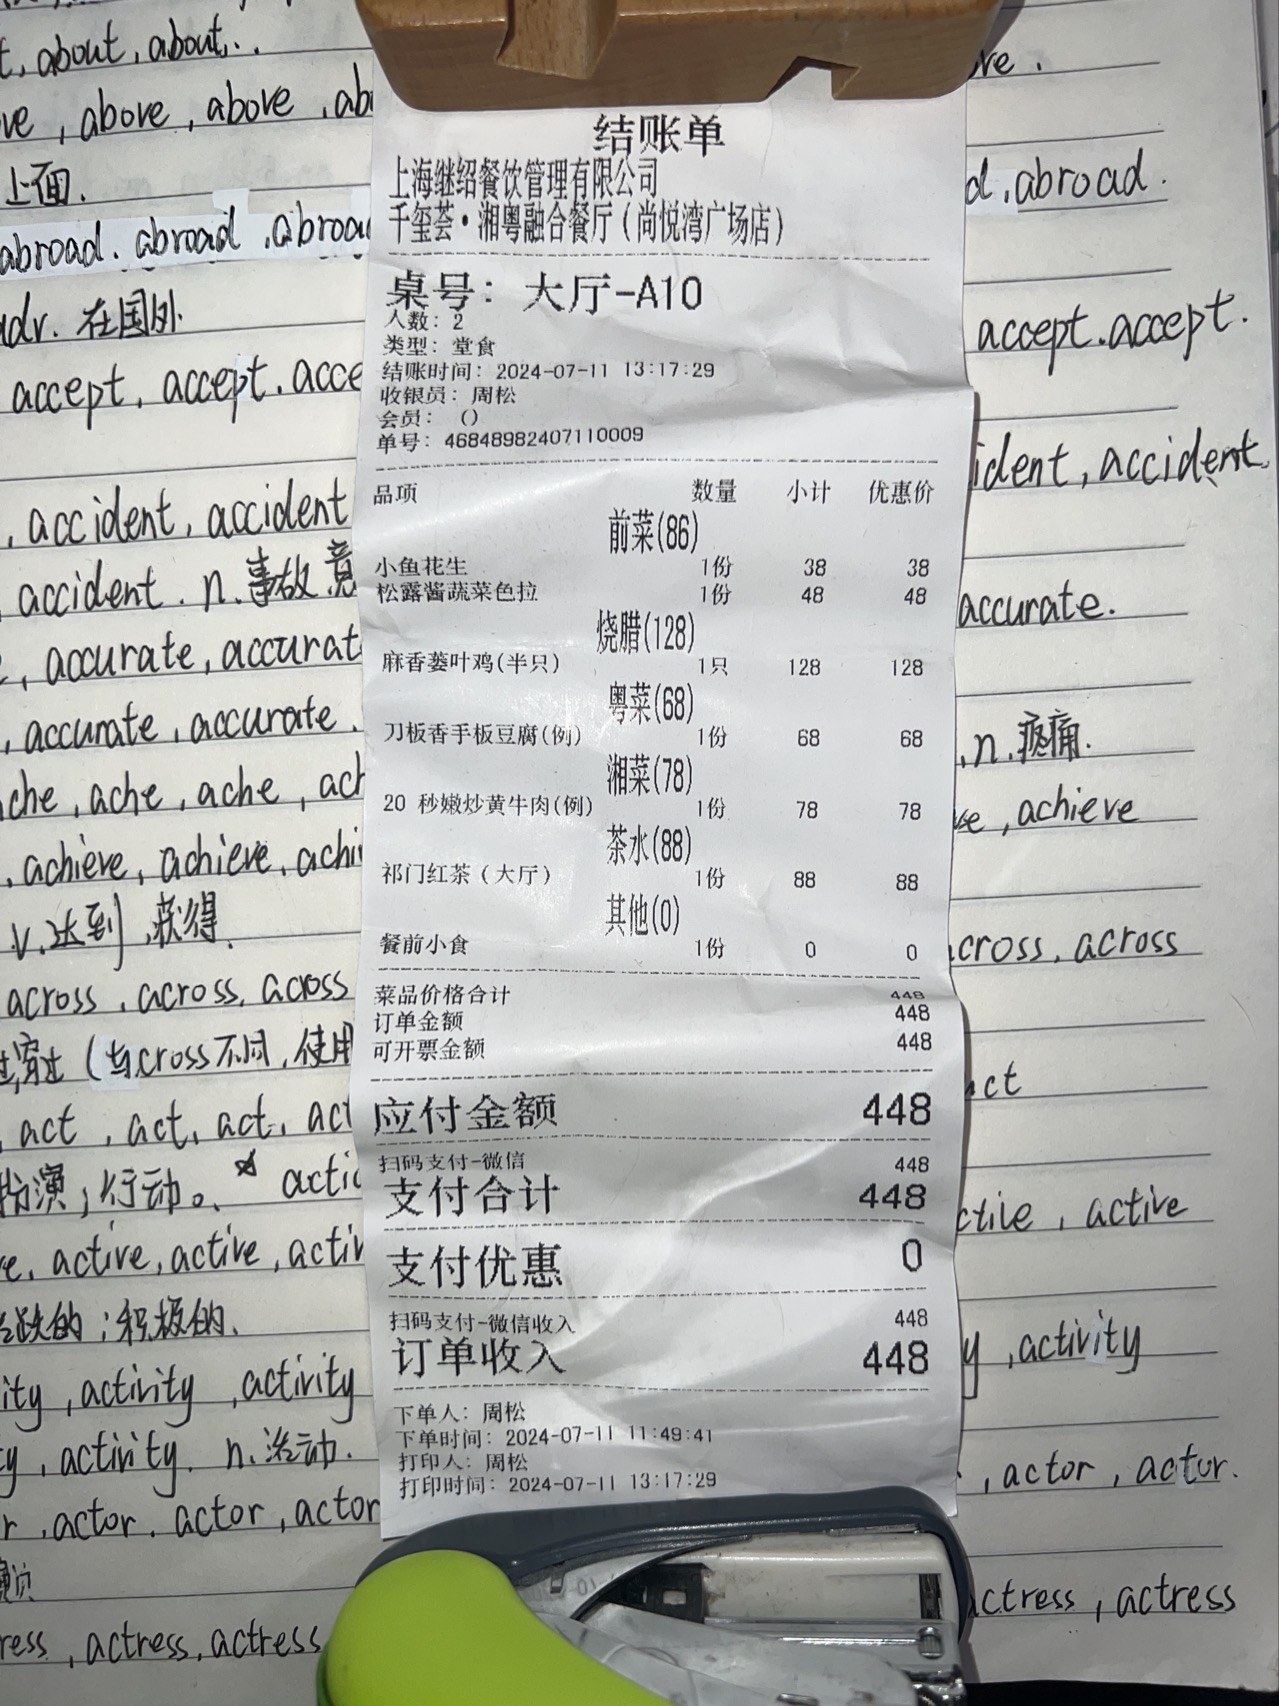 t, about, about, . .
ve, above, above, ab
上面.
abroad. abroad, abroad
adv. 在国外.
accept, accept. acce
, accident, accident
accident. n. 事故 意
, accurate, accurat
, accurate, accurate.
che, ache, ache, ach
, achieve, achieve, achi
v. 达到, 获得.
across, across, across
(与cross不同, 使用
, act, act, act, act
扮演; 行动。 actio
e, active, active, activ
活跃的; 积极的.
ity, activity, activity
y, activity. n. 活动.
r, actor. actor, actor
ress, actress, actress
结账单
上海继绍餐饮管理有限公司
千玺荟·湘粤融合餐厅(尚悦湾广场店)
桌号: 大厅-A10
人数: 2
类型: 堂食
结账时间: 2024-07-11 13:17:29
收银员: 周松
会员: ()
单号: 46848982407110009
品项 数量 小计 优惠价
前菜(86)
小鱼花生 1份 38 38
松露酱蔬菜色拉 1份 48 48
烧腊(128)
麻香蒌叶鸡(半只) 1只 128 128
粤菜(68)
刀板香手板豆腐(例) 1份 68 68
湘菜(78)
20 秒嫩炒黄牛肉(例) 1份 78 78
茶水(88)
祁门红茶(大厅) 1份 88 88
其他(0)
餐前小食 1份 0 0
菜品价格合计 448
订单金额 448
可开票金额 448
应付金额 448
扫码支付-微信 448
支付合计 448
支付优惠 0
扫码支付-微信收入 448
订单收入 448
下单人: 周松
下单时间: 2024-07-11 11:49:41
打印人: 周松
打印时间: 2024-07-11 13:17:29
ve.
d, abroad.
accept. accept.
ident, accident.
accurate.
. n. 疼痛.
ve, achieve
cross, across
act
ctive, active
y, activity
, actor, actor.
actress, actress